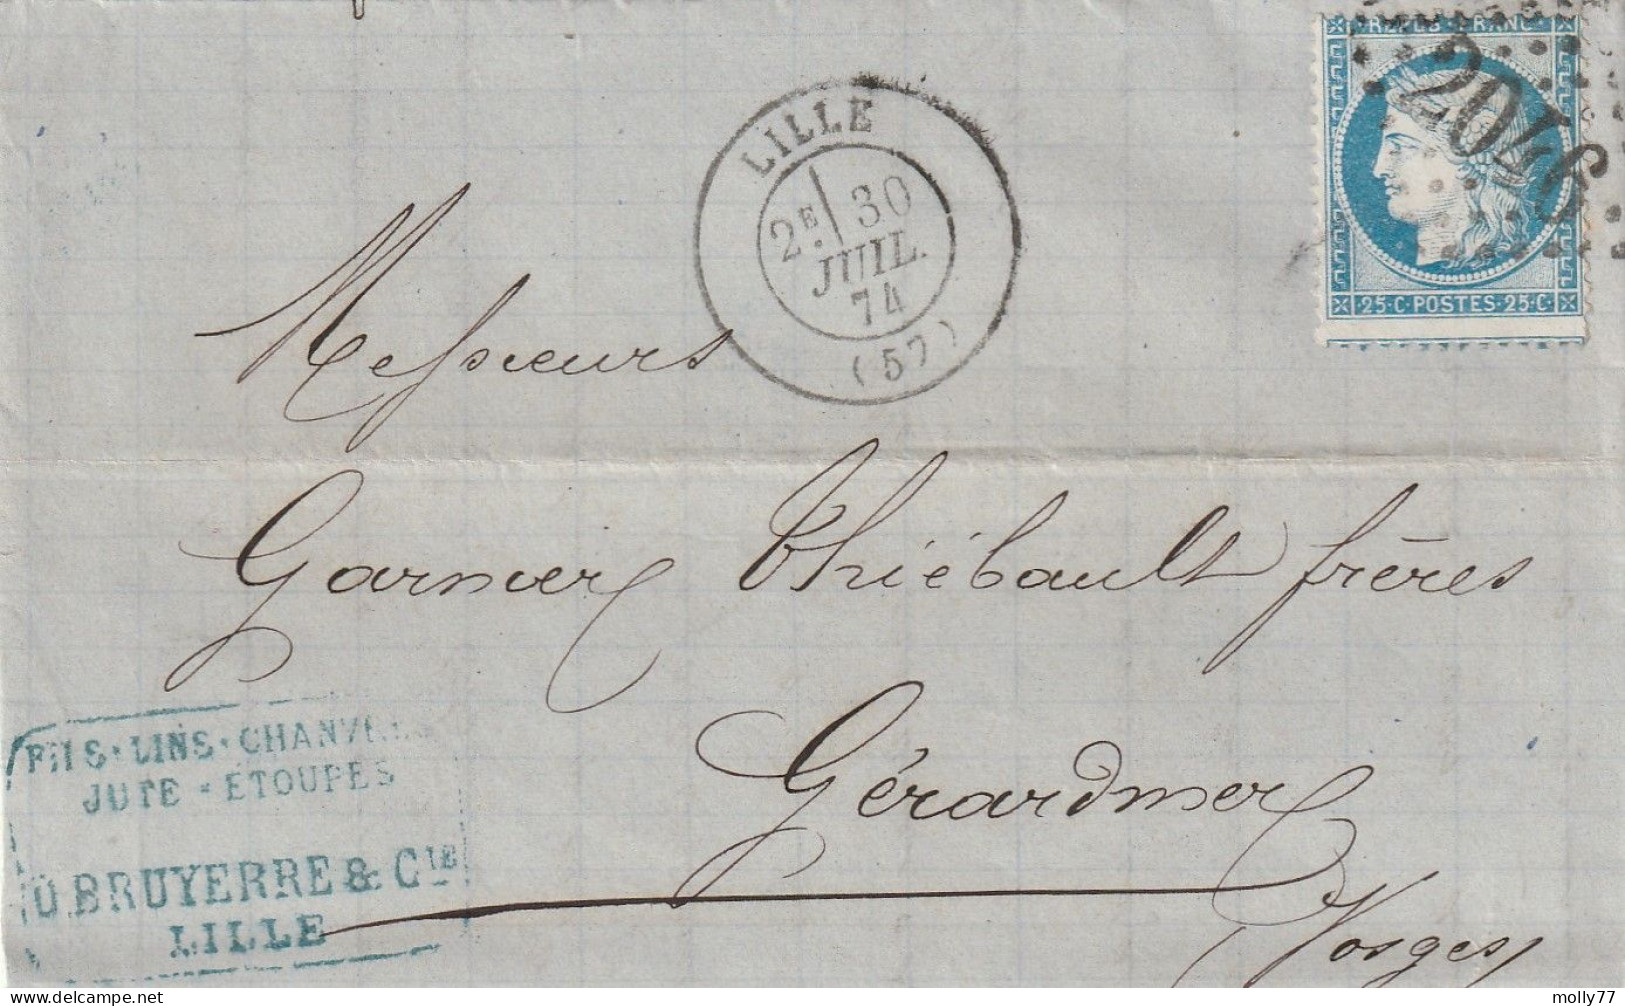 REPUB·FRANC·
2046
25·C·POSTES·25·C·
LILLE
2E 30
JUIL.
74
(57)
Messieurs
Garnier Thiébault frères
Gérardmer
Vosges
FILS·LINS·CHANVRES
JUTE-ÉTOUPES
BRUYERRE & CIE
LILLE
delcampe.net
molly77